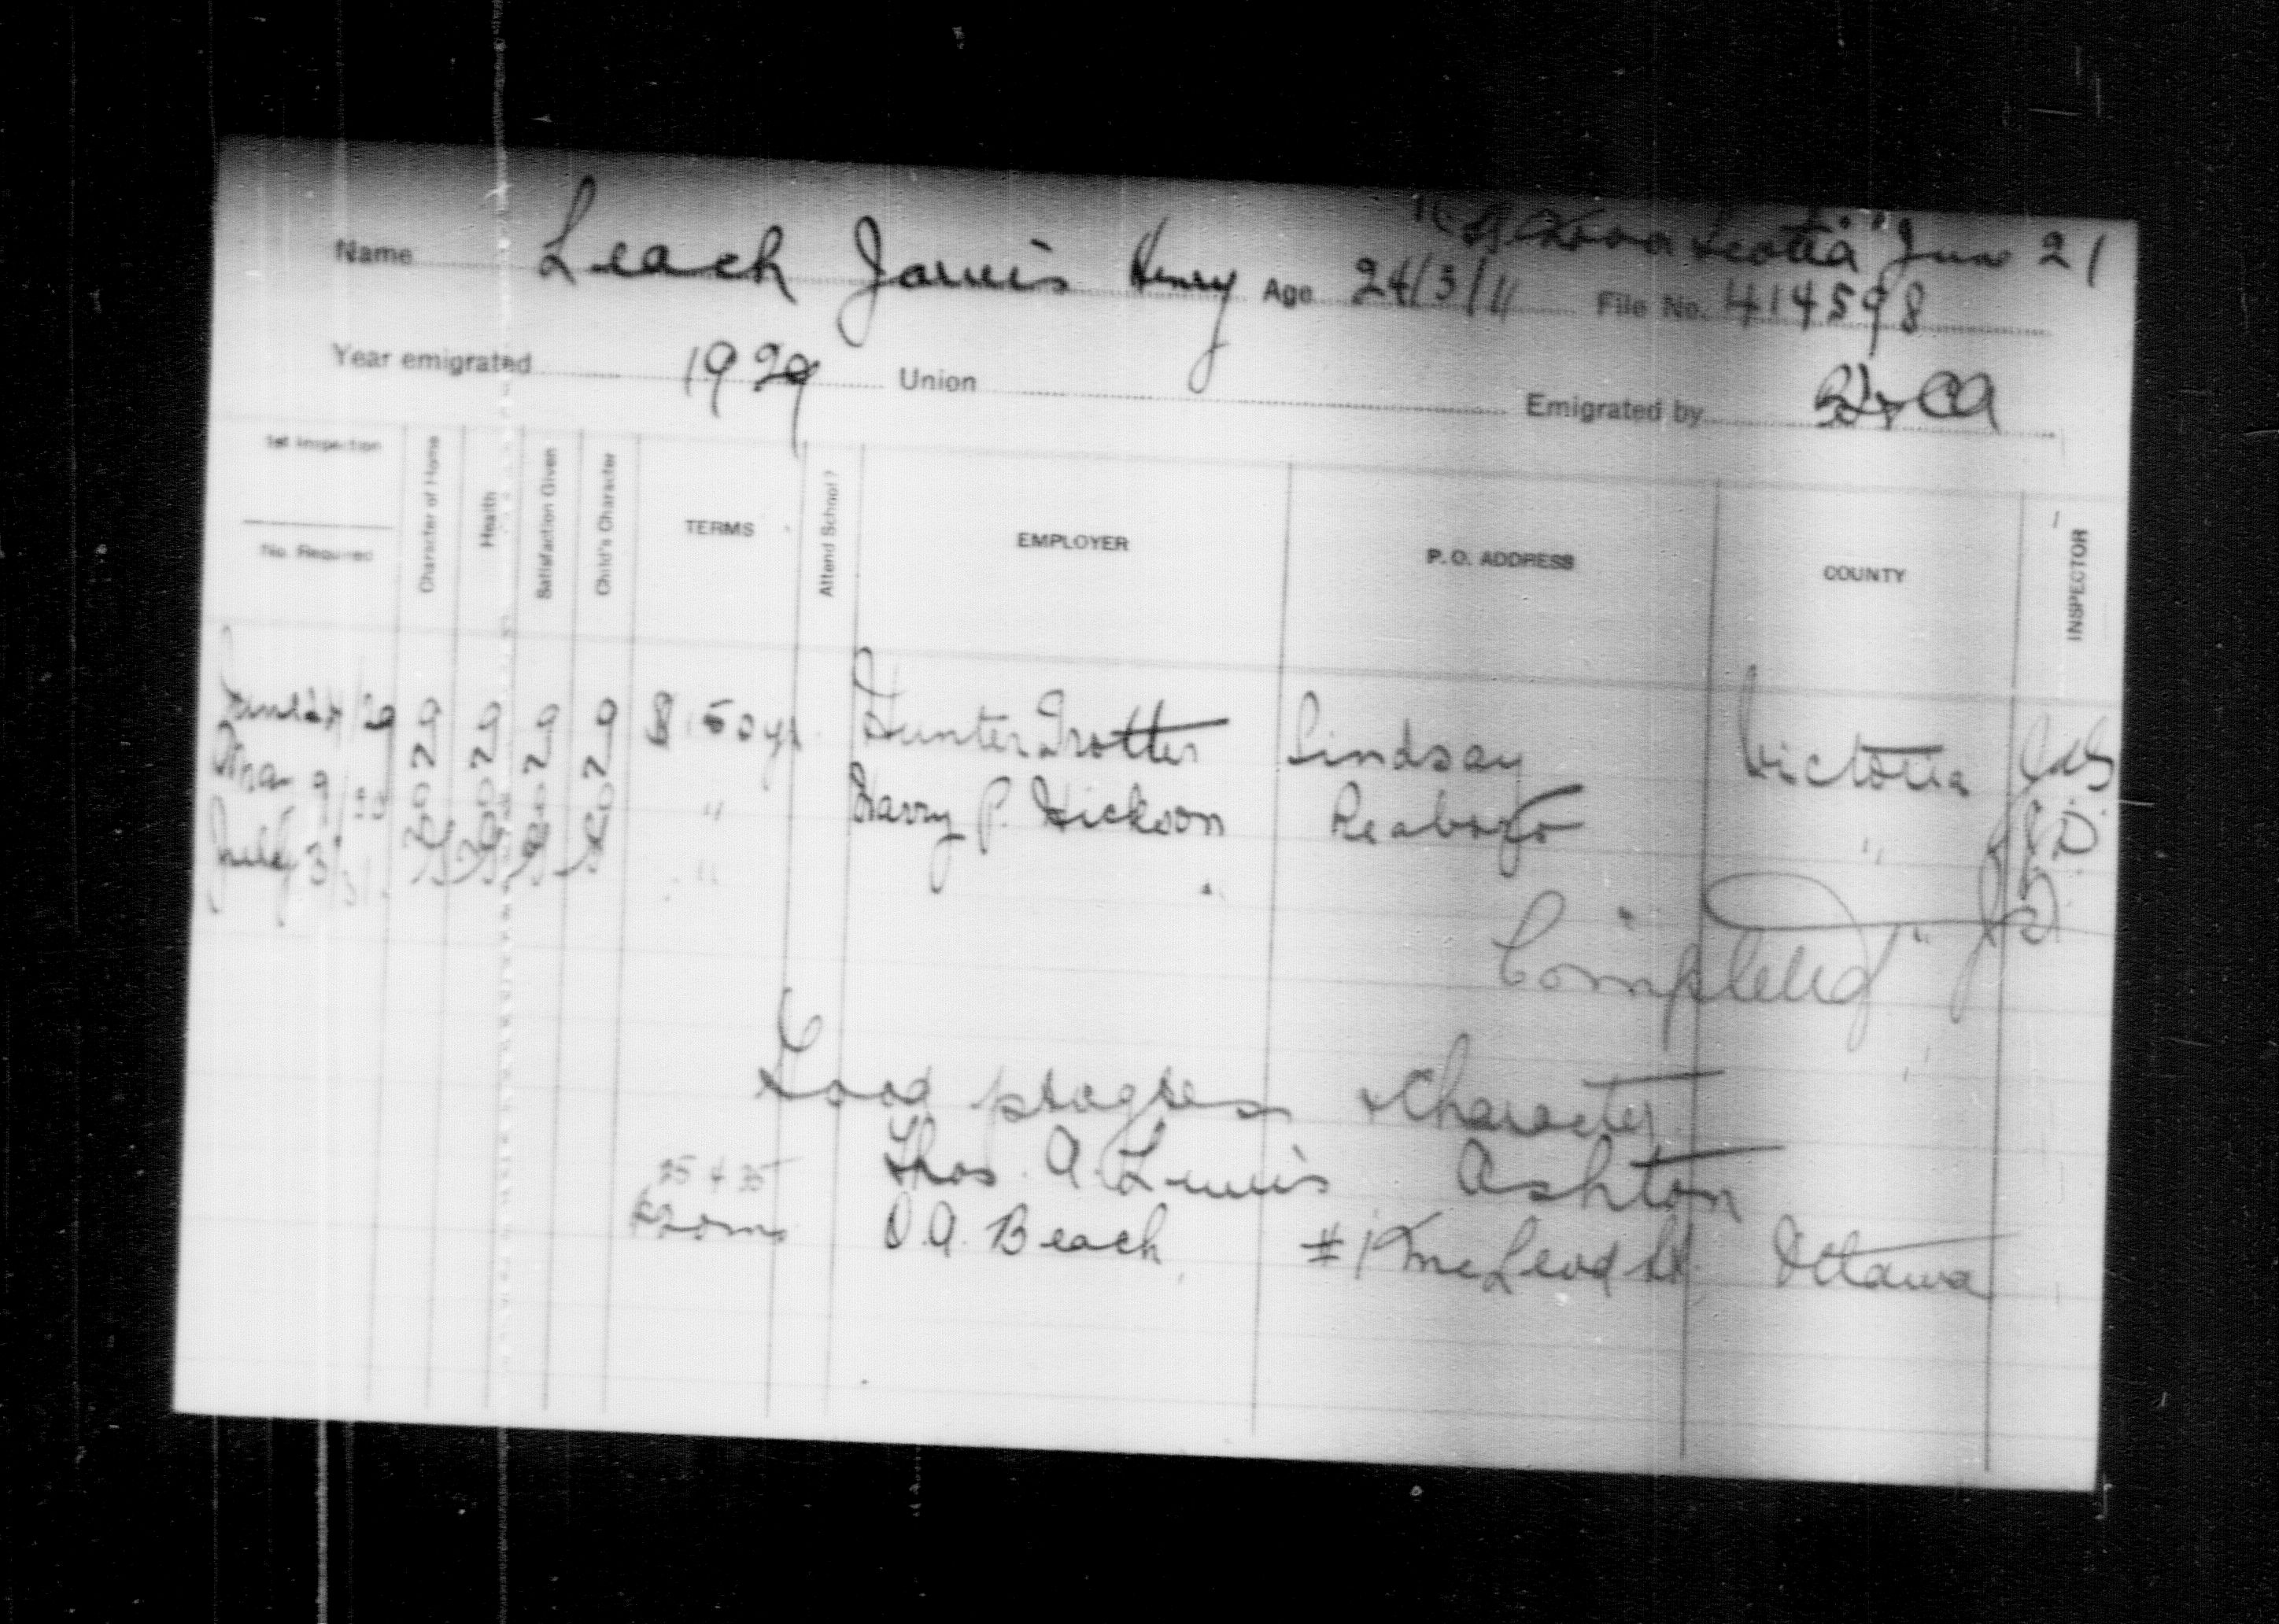 Nova Scotia" Jun 21
Name Leach Jarvis Henry Age 24/3/11 File No. 414598
Year emigrated 1929 Union Emigrated by
1st Inspection
No. Required
Character of Home
Health
Satisfaction Given
Child's Character
TERMS
Attend School?
EMPLOYER
P. O. ADDRESS
COUNTY
INSPECTOR
29 g g g g $150 yr. Hunter Trotter Lindsay Victoria
Mar 9 " Harry P. Hickson Reaboro "
July 3/31 " " "
Completed
Good progress & Character
25 & 35 Thos. A. Lewis Ashton
O. A. Beach # McLeod St Ottawa